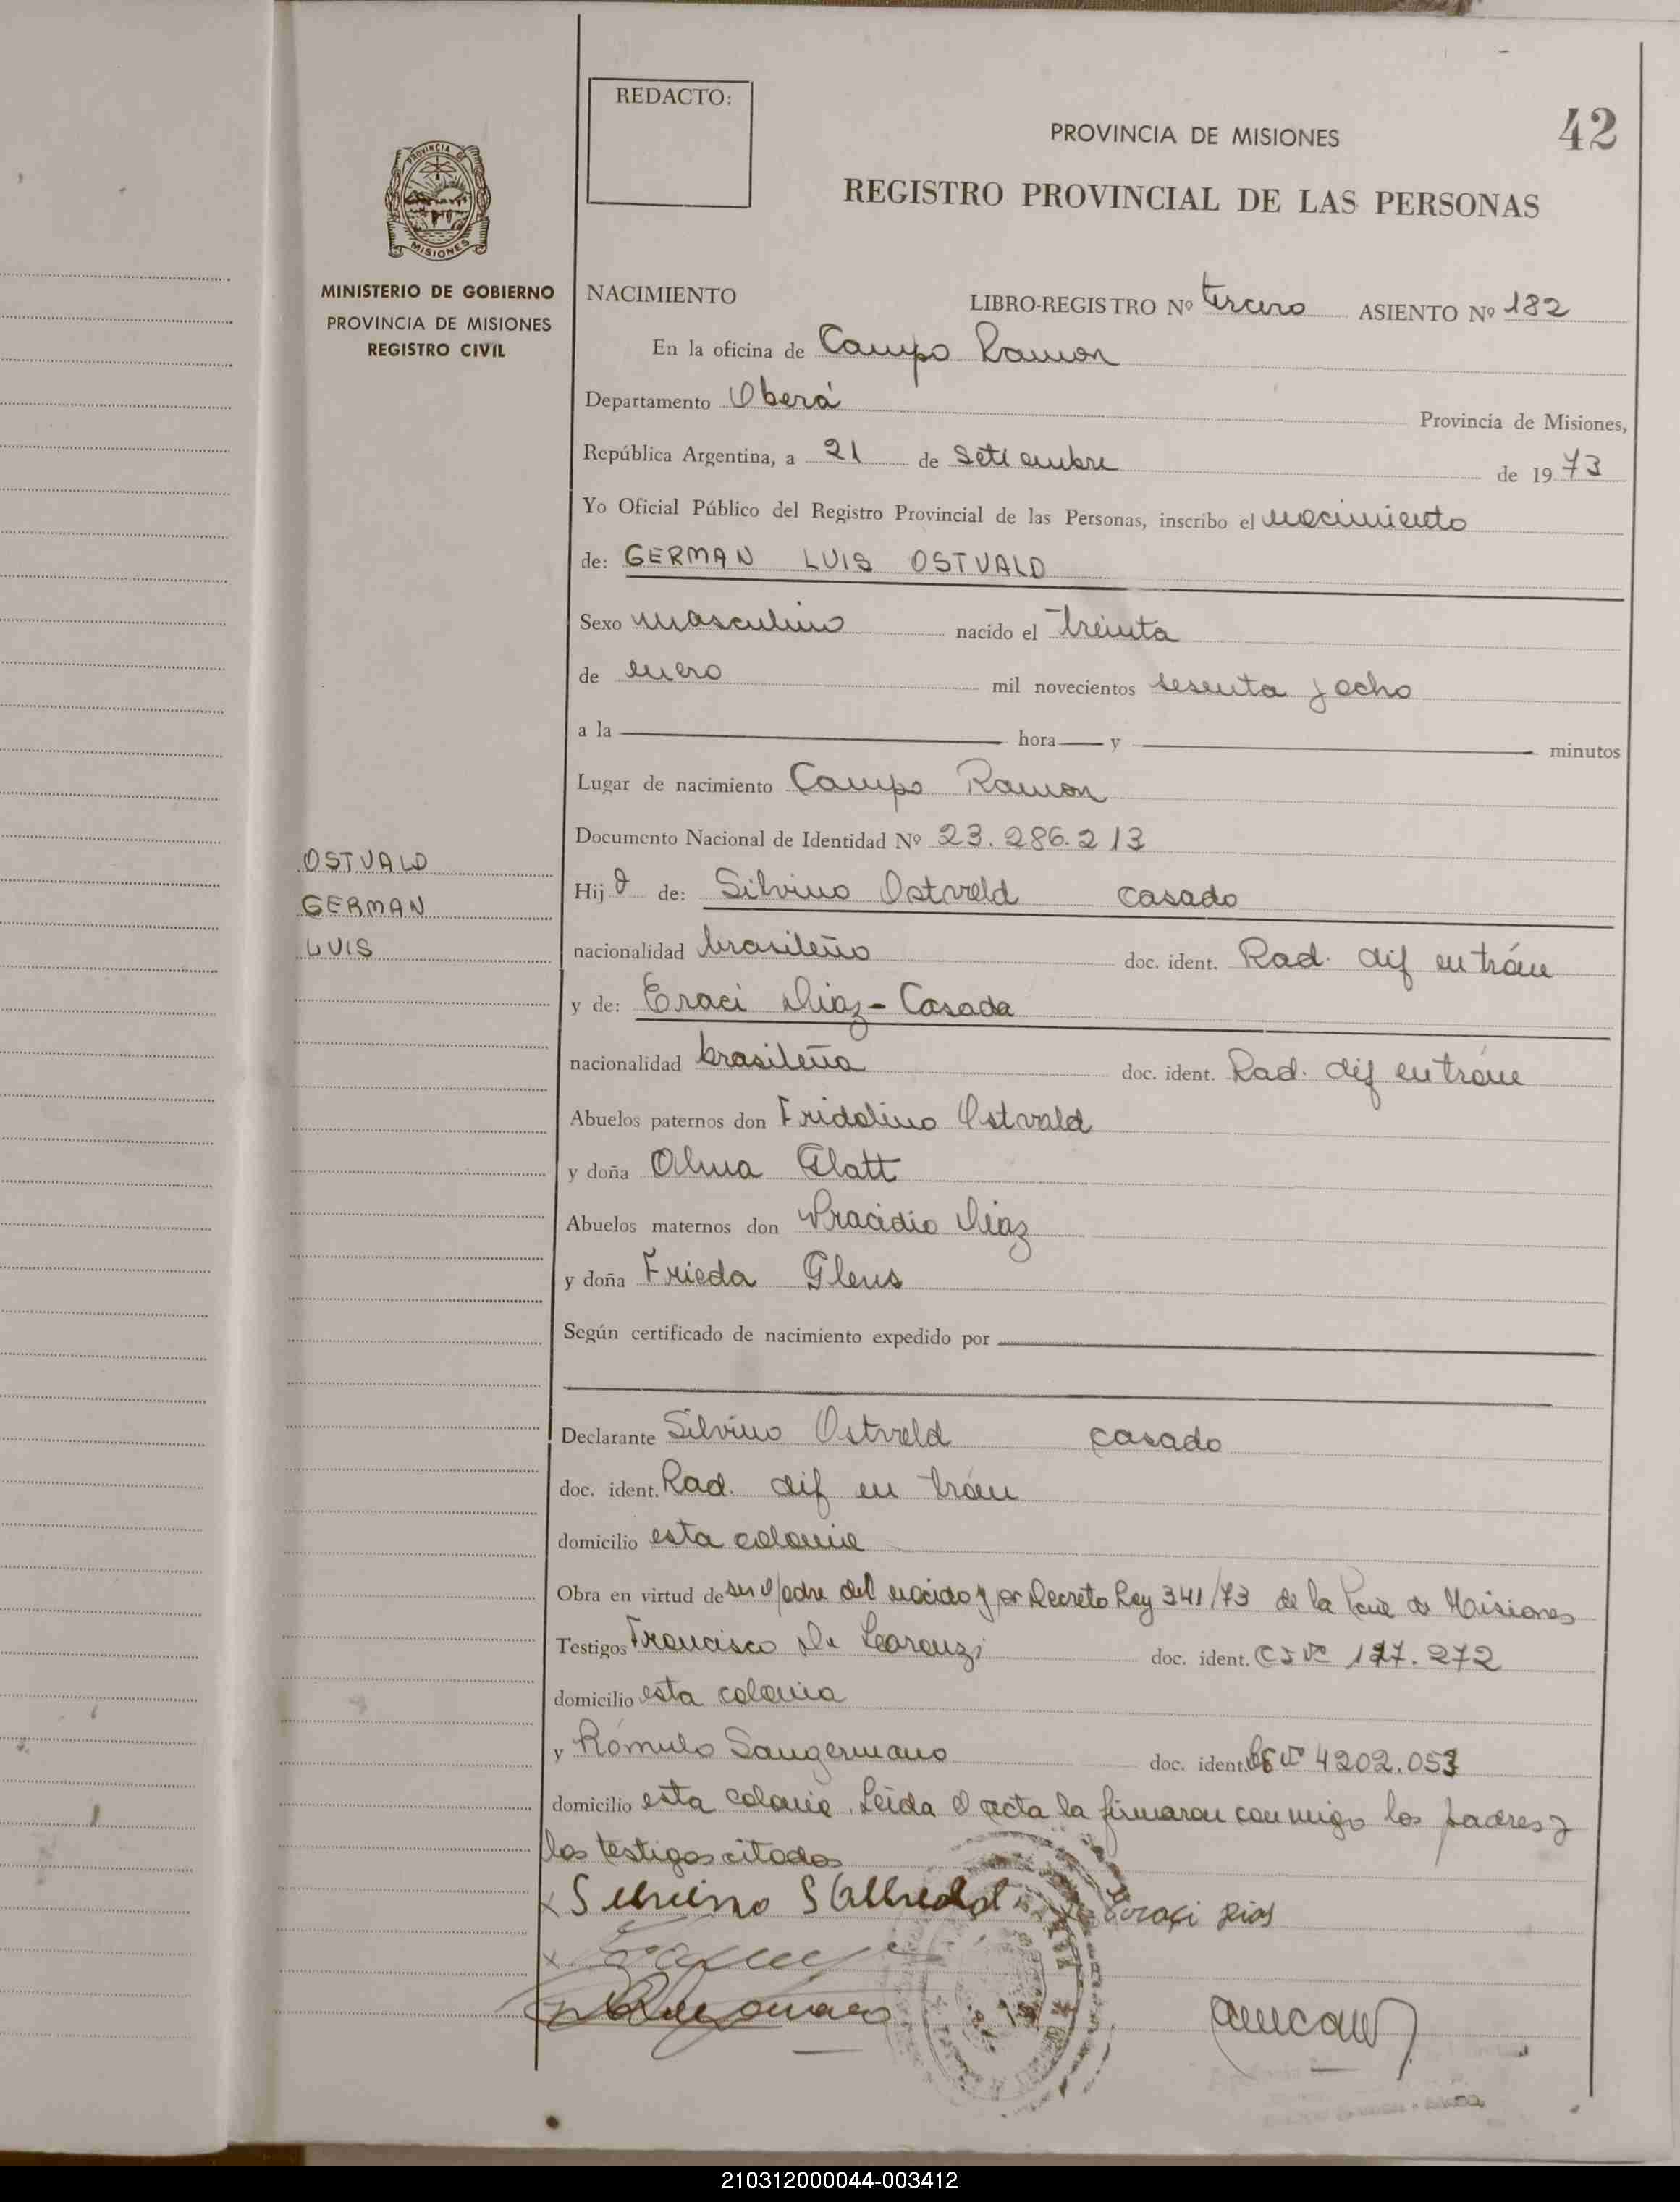 REDACTO:
PROVINCIA DE MISIONES
42
REGISTRO PROVINCIAL DE LAS PERSONAS
PROVINCIA DE
MISIONES
MINISTERIO DE GOBIERNO
PROVINCIA DE MISIONES
REGISTRO CIVIL
NACIMIENTO LIBRO-REGISTRO Nº tercero ASIENTO Nº 182
En la oficina de Campo Ramon
Departamento Oberá Provincia de Misiones,
República Argentina, a 21 de Setiembre de 1973
Yo Oficial Público del Registro Provincial de las Personas, inscribo el nacimiento
de: GERMAN LUIS OSTVALD
Sexo masculino nacido el treinta
de enero mil novecientos sesenta y ocho
a la hora y minutos
Lugar de nacimiento Campo Ramon
Documento Nacional de Identidad Nº 23.286.213
OSTVALD
GERMAN
LUIS
Hijo de: Silvino Ostvald casado
nacionalidad brasileño doc. ident. Rad. dif en trám
y de: Eraci Diaz - Casada
nacionalidad brasileña doc. ident. Rad. dif en trám
Abuelos paternos don Fridolino Ostvald
y doña Olma Glatt
Abuelos maternos don Pracidio Diaz
y doña Frieda Glens
Según certificado de nacimiento expedido por
Declarante Silvino Ostvald casado
doc. ident. Rad. dif en trám
domicilio esta colonia
Obra en virtud de ser el padre del nacido y por Decreto Ley 341/73 de la Pcia de Misiones
Testigos Francisco De doc. ident. CI Nº 127.272
domicilio esta colonia
y Rómulo Sangermano doc. ident. Nº 4202.053
domicilio esta colonia. Leida el acta la firmaron conmigo los padres y
los testigos citados
210312000044-003412